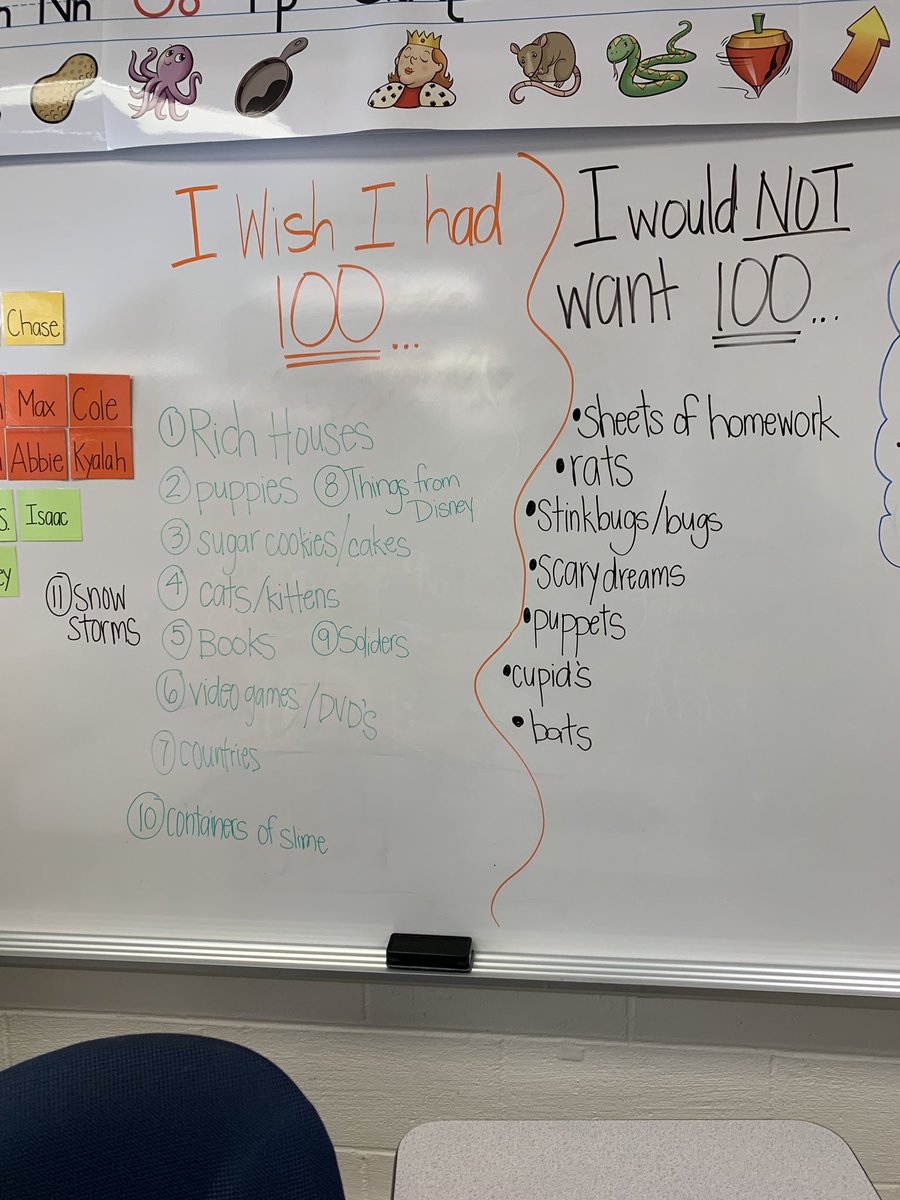 Nn Oo Pp
Chase
Max Cole
Abbie Kyalah
S. Isaac
ey
I Wish I had
100...
① Rich Houses
② puppies
③ sugar cookies/cakes
④ cats/kittens
⑤ Books
⑥ video games/DVD's
⑦ countries
⑧ Things from
Disney
⑨ Soliders
⑩ containers of slime
⑪ snow
storms
I would NOT
want 100...
•sheets of homework
•rats
•Stinkbugs/bugs
•scary dreams
•puppets
•cupid's
•bats